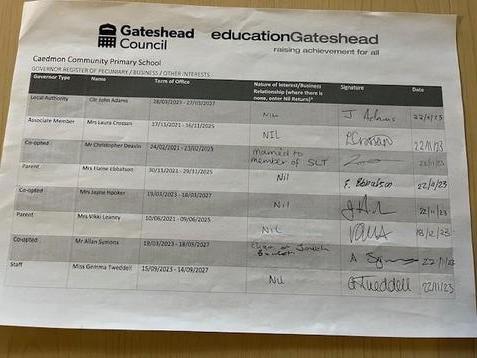 Gateshead Council
educationGateshead
raising achievement for all
Caedmon Community Primary School
GOVERNOR REGISTER OF PECUNIARY / BUSINESS / OTHER INTERESTS
Governor Type Name Term of Office Nature of Interest/Business Relationship (where there is none, enter Nil Return) Signature Date
Local Authority Cllr John Adams 28/03/2023 - 27/03/2027 NIL J Adams 22/11/23
Associate Member Mrs Laura Crossan 17/11/2021 - 16/11/2025 NIL LCrossan 22/11/23
Co-opted Mr Christopher Deavin 24/02/2021 - 23/02/2025 married to member of SLT
Parent Mrs Elaine Ebbatson 30/11/2021 - 29/11/2025 Nil E. Ebbatson 22/11/23
Co-opted Mrs Jayne Hooker 19/03/2023 - 18/03/2027 Nil 22/11/23
Parent Mrs Vikki Leaney 10/06/2021 - 09/06/2025 Nil 13/12/23
Co-opted Mr Allan Symons 19/03/2023 - 18/03/2027 A 22/11/23
Staff Miss Gemma Tweddell 15/09/2023 - 14/09/2027 Nil GTweddell 22/11/23